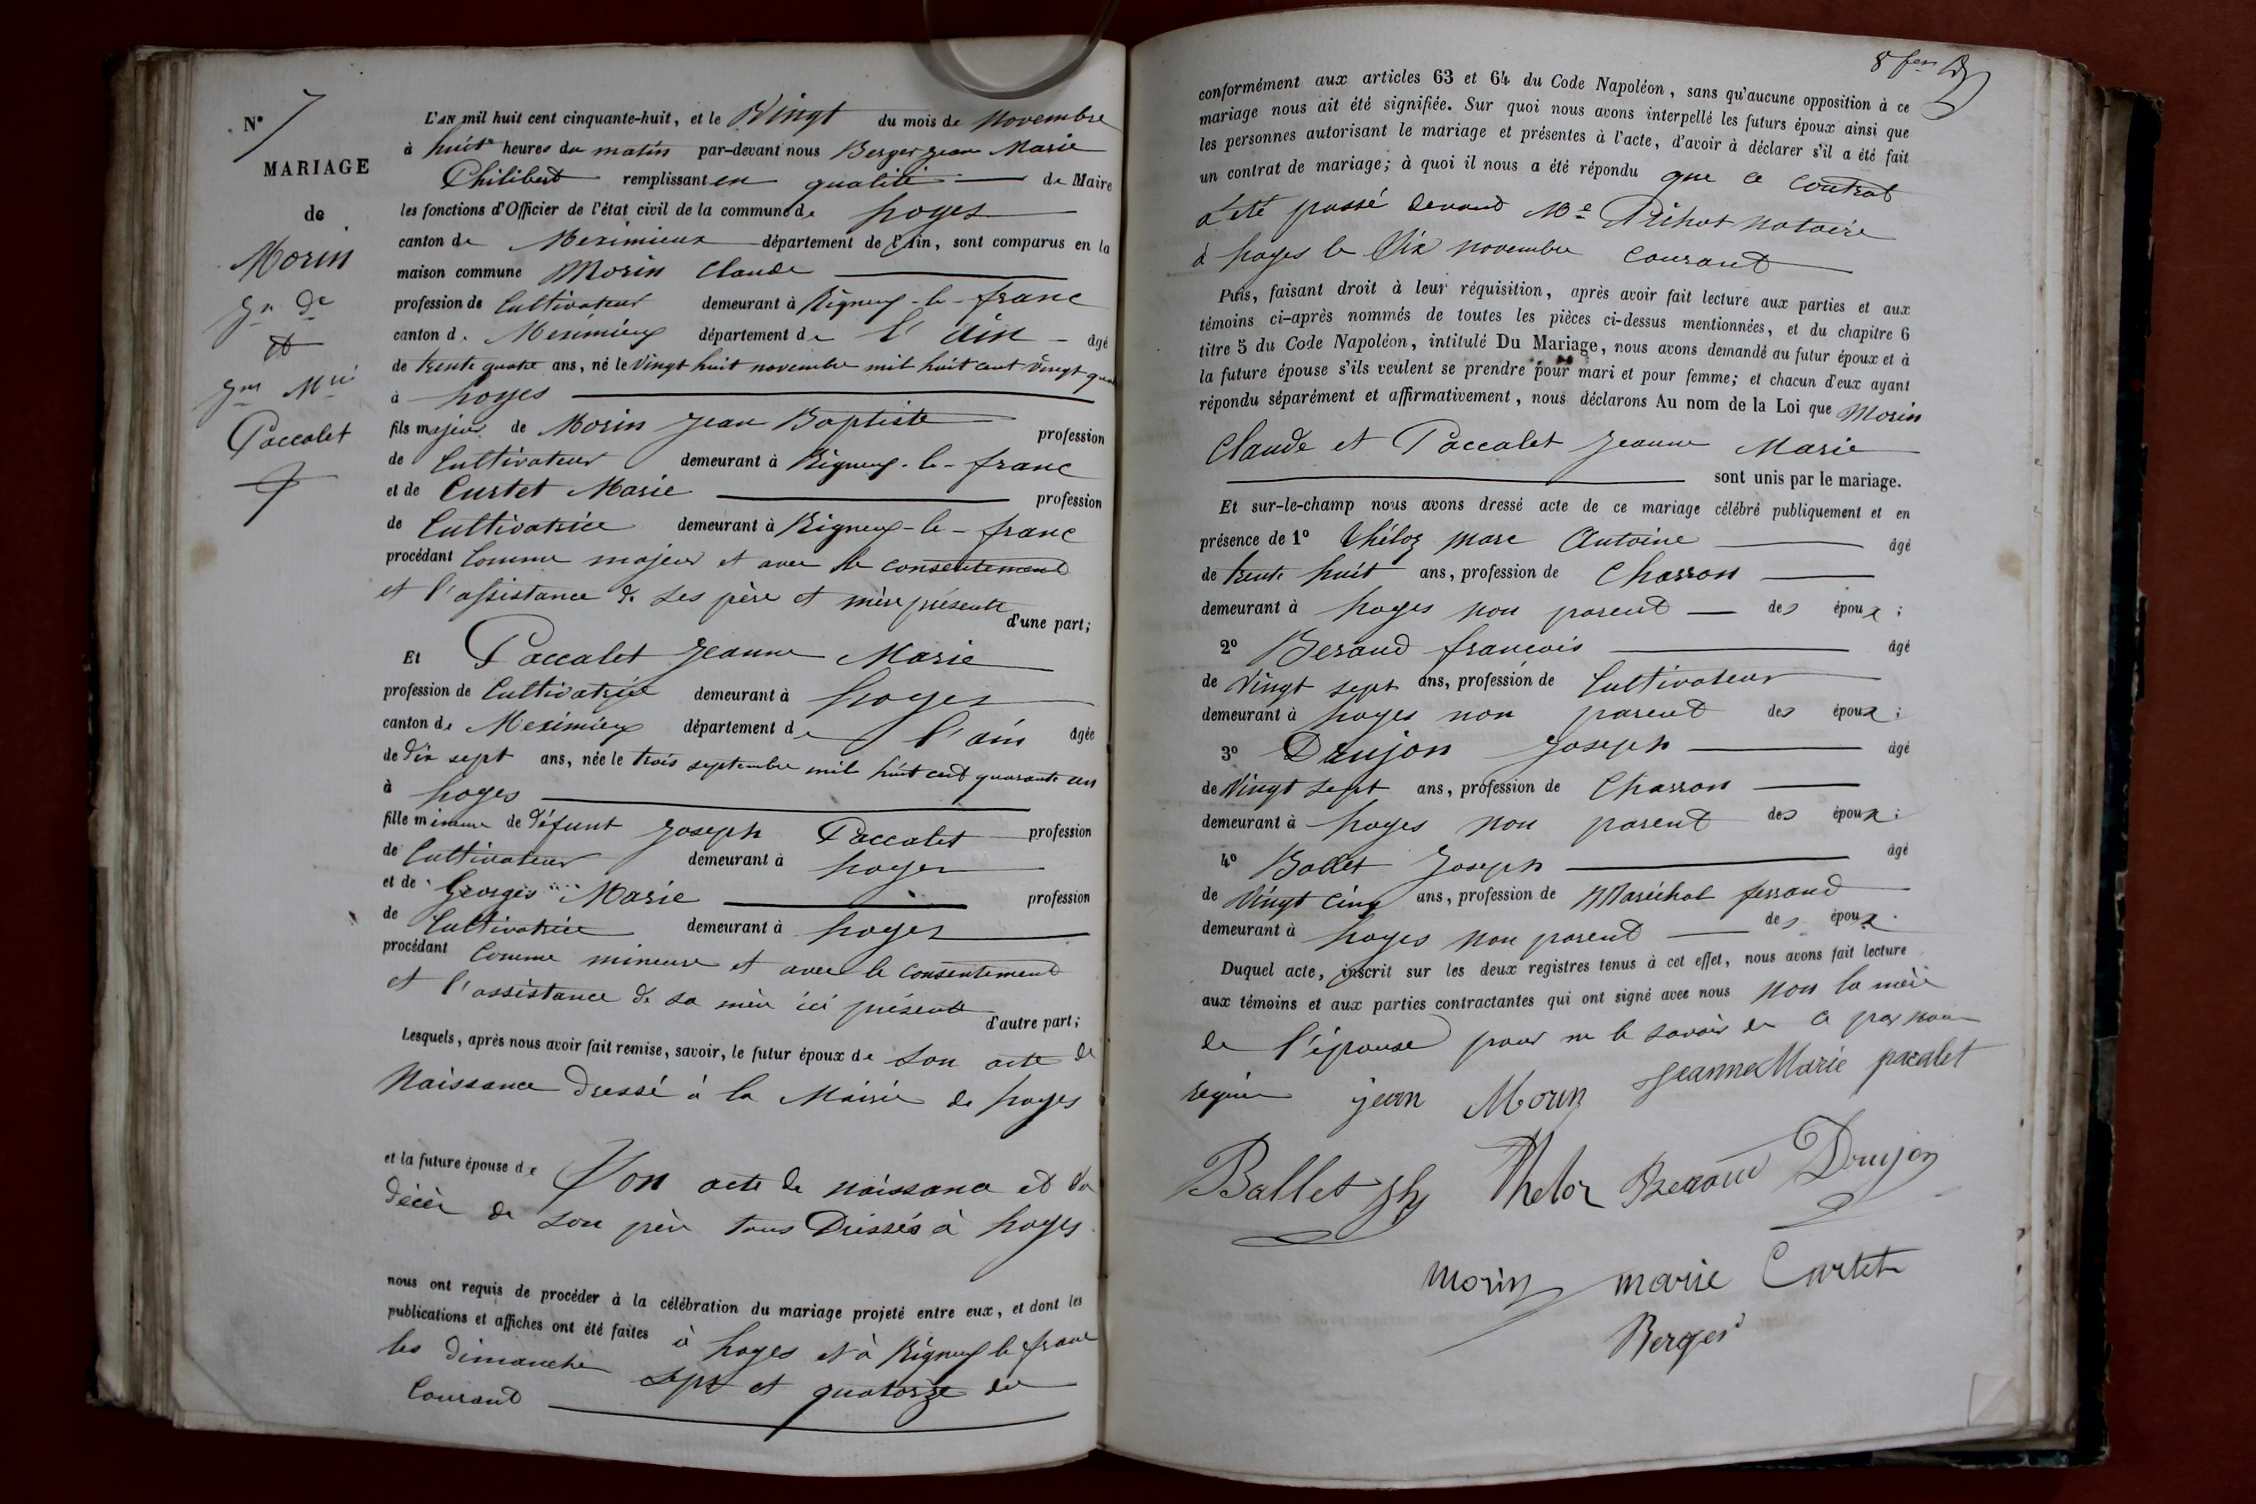 N° 7
MARIAGE
de
Morin
Jn de
et
Jne Mrie
Paccalet
L'AN mil huit cent cinquante-huit, et le Vingt du mois de novembre
à huit heures du matin par-devant nous Berger Jean Marie
Philibert remplissant en qualité de Maire
les fonctions d'Officier de l'état civil de la commune de
canton de Meximieux département de l'Ain, sont comparus en la
maison commune Morin Claude
profession de Cultivateur demeurant à Rigneux-le-franc
canton de Meximieux département de l'ain âgé
de trente quatre ans, né le Vingt huit novembre mil huit cent vingt
à
fils majeur de Morin Jean Baptiste profession
de Cultivateur demeurant à Rigneux-le-franc
et de Curtet Marie profession
de Cultivatrice demeurant à Rigneux-le-franc
procédant Comme majeur et avec le consentement
et l'assistance de ses père et mère présents
d'une part;
Et Paccalet Jeanne Marie
profession de Cultivatrice demeurant à
canton de Meximieux département de l'ain âgée
de dix sept ans, née le trois septembre mil huit cent quarante un
à
fille mineure de défunt Joseph Paccalet profession
de Cultivateur demeurant à
et de Georges Marie profession
de Cultivatrice demeurant à
procédant Comme mineure et avec le consentement
et l'assistance de sa mère ici présente
d'autre part;
Lesquels, après nous avoir fait remise, savoir, le futur époux de son acte de
Naissance dressé à la Mairie de
et la future épouse de Son acte de naissance et du
décès de son père tous dressés à
nous ont requis de procéder à la célébration du mariage projeté entre eux, et dont les
publications et affiches ont été faites à et à Rigneux le franc
les dimanche sept et quatorze du
Courant
conformément aux articles 63 et 64 du Code Napoléon, sans qu'aucune opposition à ce
mariage nous ait été signifiée. Sur quoi nous avons interpellé les futurs époux ainsi que
les personnes autorisant le mariage et présentes à l'acte, d'avoir à déclarer s'il a été fait
un contrat de mariage; à quoi il nous a été répondu que ce contrat
a été passé devant Me notaire
à le Six novembre courant
Puis, faisant droit à leur réquisition, après avoir fait lecture aux parties et aux
témoins ci-après nommés de toutes les pièces ci-dessus mentionnées, et du chapitre 6
titre 5 du Code Napoléon, intitulé Du Mariage, nous avons demandé au futur époux et à
la future épouse s'ils veulent se prendre pour mari et pour femme; et chacun d'eux ayant
répondu séparément et affirmativement, nous déclarons Au nom de la Loi que Morin
Claude et Paccalet Jeanne Marie
sont unis par le mariage.
Et sur-le-champ nous avons dressé acte de ce mariage célébré publiquement et en
présence de 1° Théloz marc Antoine âgé
de trente huit ans, profession de Charron
demeurant à non parent des époux;
2° Beraud françois âgé
de Vingt sept ans, profession de Cultivateur
demeurant à non parent des époux;
3° Draujon Joseph âgé
de Vingt sept ans, profession de Charron
demeurant à non parent des époux;
4° Ballet Joseph âgé
de Vingt cinq ans, profession de Maréchal ferrand
demeurant à non parent des époux.
Duquel acte, inscrit sur les deux registres tenus à cet effet, nous avons fait lecture
aux témoins et aux parties contractantes qui ont signé avec nous non la mère
de l'épouse pour ne le savoir de ce par nous
requise jean Morin Jeanne Marie pacalet
Ballet Jh Theloz Beraud Doujon
morin marie Curtet
Berger